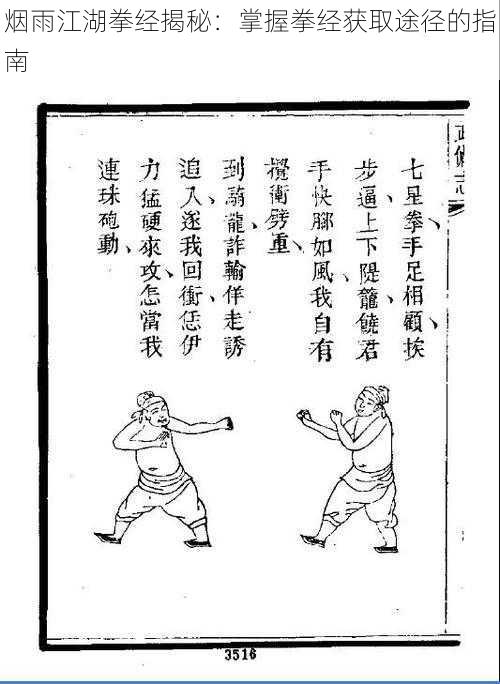 烟雨江湖拳经揭秘：掌握拳经获取途径的指
南
武備志
七星拳、手足相顧、挨
步逼、上下隄籠、饒君
手快腳如風、我自有
攪衝劈重、
到騎龍、詐輸佯走、誘
追入、遂我回衝、恁伊
力猛硬來攻、怎當我
連珠砲動、
3516